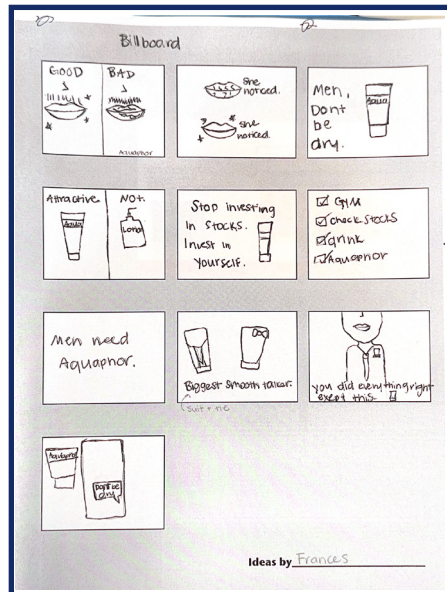 Billboard
GOOD
BAD
Aquaphor
she
noticed.
she
noticed.
Men,
Dont
be
dry.
Aqua
Attractive
Not.
Aqua
Stop investing
in stocks.
Invest in
yourself.
GYM
check stocks
drink
Aquaphor
Men need
Aquaphor.
Biggest smooth talker.
suit + tie
you did everything right
exept this.
Aquaphor
Don't be
dry
Ideas by Frances